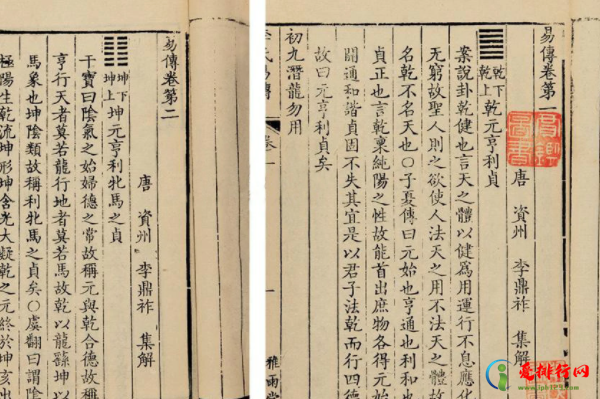 易傳卷第一
唐 資州 李鼎祚 集解
乾下
乾上
乾元亨利貞
案說卦乾健也言天之體以健爲用運行不息應化
无窮故聖人則之欲使人法天之用不法天之體故
名乾不名天也〇子夏傳曰元始也亨通也利和也
貞正也言乾稟純陽之性故能首出庶物各得元始
開通和諧貞固不失其宜是以君子法乾而行四德
故曰元亨利貞矣
初九潛龍勿用
氏易傳 卷一 一 雅雨堂
易傳卷第二
唐 資州 李鼎祚 集解
坤下
坤上
坤元亨利牝馬之貞
干寶曰陰氣之始婦德之常故稱元與乾合德故稱
亨行天者莫若龍行地者莫若馬故乾以龍繇坤以
馬象也坤陰類故稱利牝馬之貞矣〇虞翻曰謂陰
極陽生乾流坤形坤含光大凝乾之元終於坤亥出
排行网